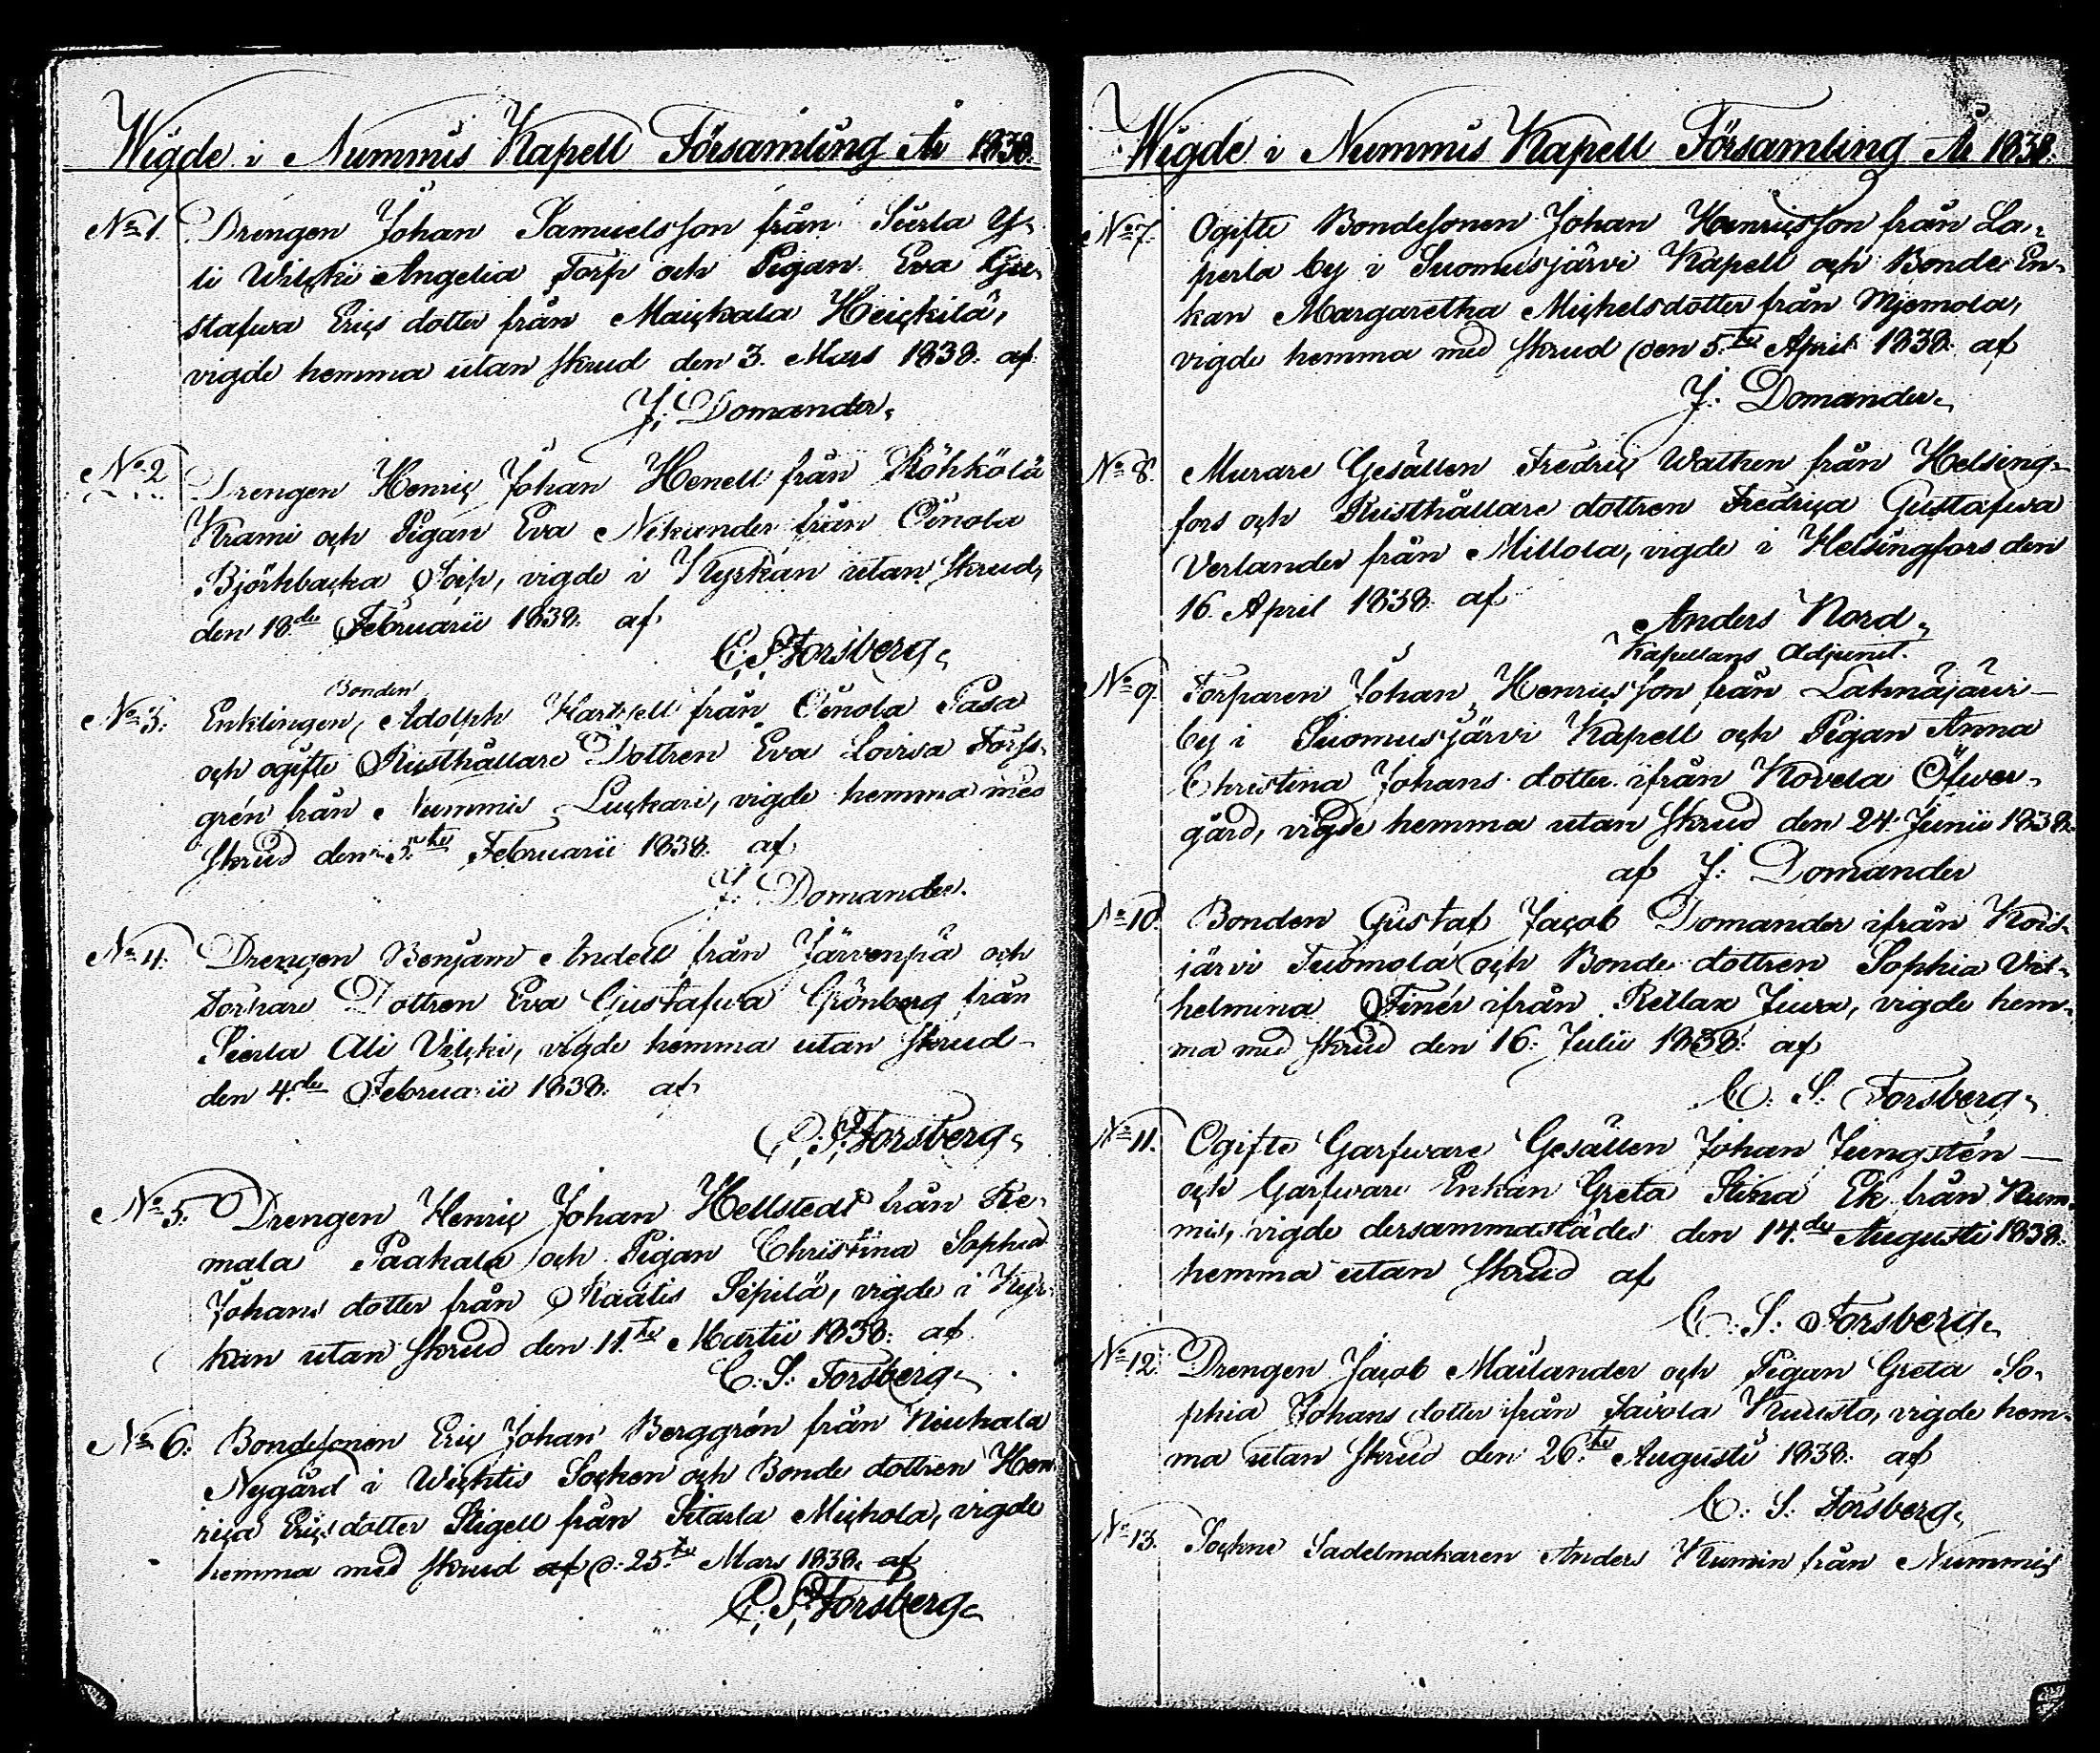 Wigde i Nummis Kapell Församling År 1838.
No 1. Drengen Johan Samuelsson från Sierla Y-
li Wilcki Angelia Torp och Pigan Eva Gu-
stafwa Erics dotter från Maickala Heickilä,
vigde hemma utan skrud den 3. Mars 1838. af
J. Domander.
No 2 Drengen Henric Johan Henell från Röhkölä
Krami och Pigan Eva Nekunder från Oinola
Björkbacka Torp, vigde i Kyrkan utan skrud,
den 18.de Februarii 1838. af
C. S. Forsberg.
Bonden
No 3. Enklingen, Adolph Hartzell från Oinola Pasa
och ogifte Rusthållare Dottren Eva Lovisa Fors-
grén från Nummis Luckari, vigde hemma med
skrud den 5.te Februarii 1838. af
J. Domander.
No 4. Drengen Benjam Andell från Järvenpä och
Torpare Dottren Eva Gustafwa Grönberg från
Sierla Ali Vilcki, vigde hemma utan skrud
den 4.de Februarii 1838. af
C. S. Forsberg.
No 5. Drengen Henric Johan Hellstedt från Re-
mala Paakala och Pigan Christina Sophia
Johans dotter från Raatis Sipilä, vigde i Kyr-
kan utan skrud den 11.te Martii 1838. af
C. S. Forsberg.
No 6. Bondesonen Eric Johan Berggrén från Niuhala
Nygård i Wichtis Socken och Bonde dottren Hen
rica Erics dotter Stigell från Sitarla Michola, vigde
hemma med skrud af d. 25.te Mars 1838. af
C. S. Forsberg.
Wigde i Nummis Kapell Församling År 1838.
No 7. Ogifte Bondesonen Johan Henricsson från La-
perla by i Suomusjärvi Kapell och Bonde En-
kan Margaretha Michelsdotter från Mjemola,
vigde hemma med skrud den 5.te April 1838. af
J. Domander.
No 8. Murare Gesällen Fredric Wathen från Helsing-
fors och Rusthållare dottren Fredrica Gustafwa
Verlander från Millola, vigde i Helsingfors den
16. April 1838. af
Anders Nord.
Kapellans Adjunct.
No 9. Torparen Johan Henricsson från Lahnajärvi
by i Suomusjärvi Kapell och Pigan Anna
Christina Johans dotter ifrån Kovela Öfwer-
gård, vigde hemma utan skrud den 24. Junii 1838.
af J. Domander
No 10. Bonden Gustaf Jacob Domander ifrån Kois-
järvi Tuomola och Bonde dottren Sophia Vil-
helmina Finér ifrån Retlax Juva, vigde hem-
ma med skrud den 16. Julii 1838. af
C. S. Forsberg.
No 11. Ogifte Garfware Gesällen Johan Jungstén
och Garfware Enkan Greta Stina Ek från Num-
mis, vigde dersammastädes den 14.de Augusti 1838.
hemma utan skrud af
C. S. Forsberg.
No 12. Drengen Jacob Mailander och Pigan Greta So-
phia Johans dotter ifrån Savola Kuusto, vigde hem-
ma utan skrud den 26.te Augusti 1838. af
C. S. Forsberg.
No 13. Sockne Sadelmakaren Anders Kumin från Nummis